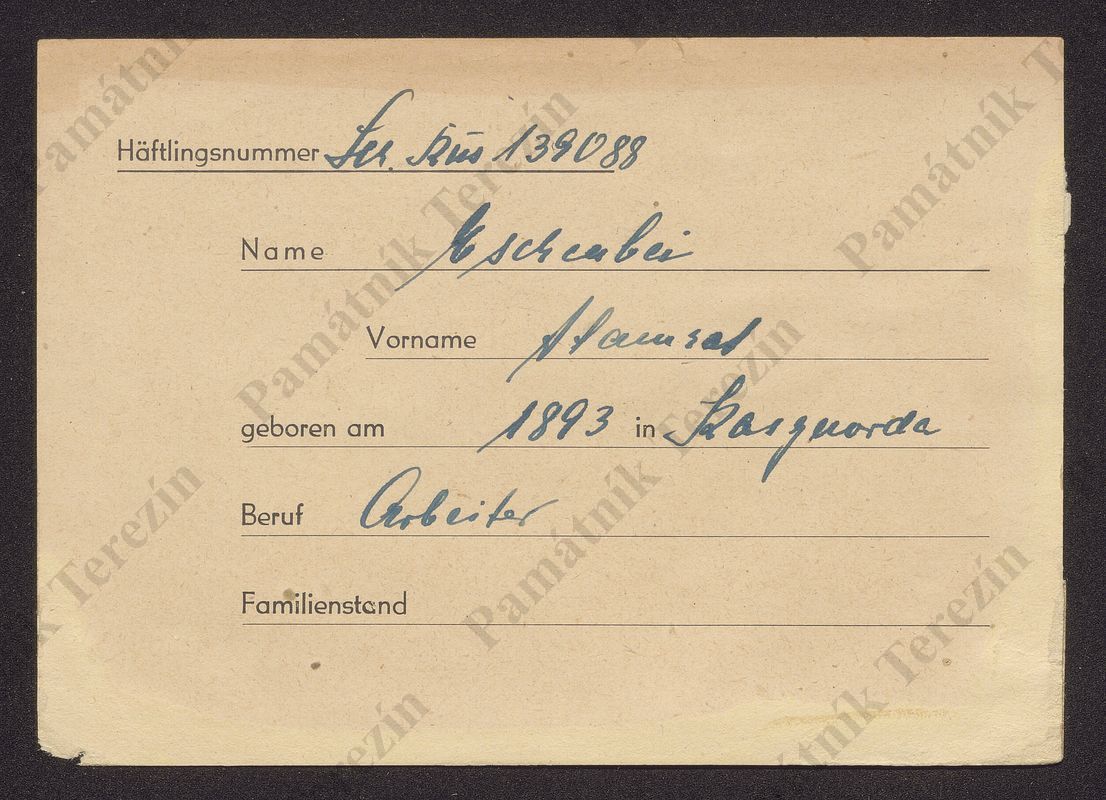 Häftlingsnummer Sch. Rus 139088
Name Eschenbei
Vorname
geboren am 1893 in Kasguorda
Beruf Arbeiter
Familienstand
Památník Terezín